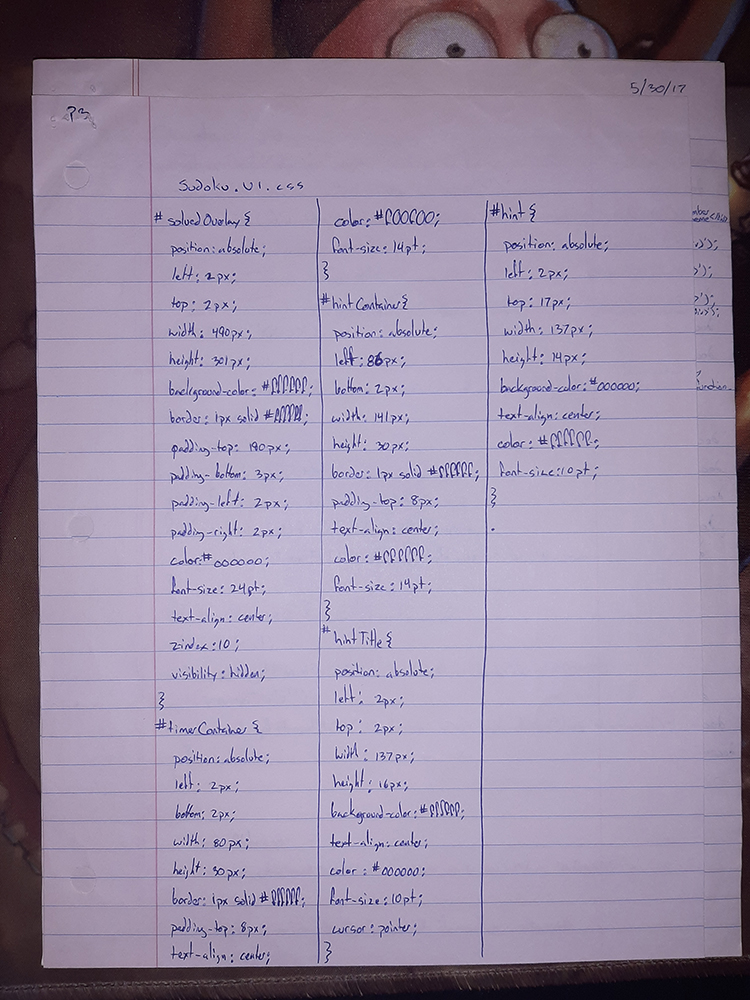 5/30/17
P3
Sudoku.UI.css
#solvedOverlay {
position: absolute;
left: 2px;
top: 2px;
width: 490px;
height: 301px;
background-color: #ffffff;
border: 1px solid #ffffff;
padding-top: 190px;
padding-bottom: 3px;
padding-left: 2px;
padding-right: 2px;
color: #000000;
font-size: 24pt;
text-align: center;
z-index: 10;
visibility: hidden;
}
#timerContainer {
position: absolute;
left: 2px;
bottom: 2px;
width: 80px;
height: 30px;
border: 1px solid #ffffff;
padding-top: 8px;
text-align: center;
color: #f00f00;
font-size: 14pt;
}
#hintContainer{
position: absolute;
left: 86px;
bottom: 2px;
width: 141px;
height: 30px;
border: 1px solid #ffffff;
padding-top: 8px;
text-align: center;
color: #ffffff;
font-size: 14pt;
}
#hintTitle {
position: absolute;
left: 2px;
top: 2px;
width: 137px;
height: 16px;
background-color: #ffffff;
text-align: center;
color: #000000;
font-size: 10pt;
cursor: pointer;
}
#hint {
position: absolute;
left: 2px;
top: 17px;
width: 137px;
height: 14px;
background-color: #000000;
text-align: center;
color: #ffffff;
font-size: 10pt;
}